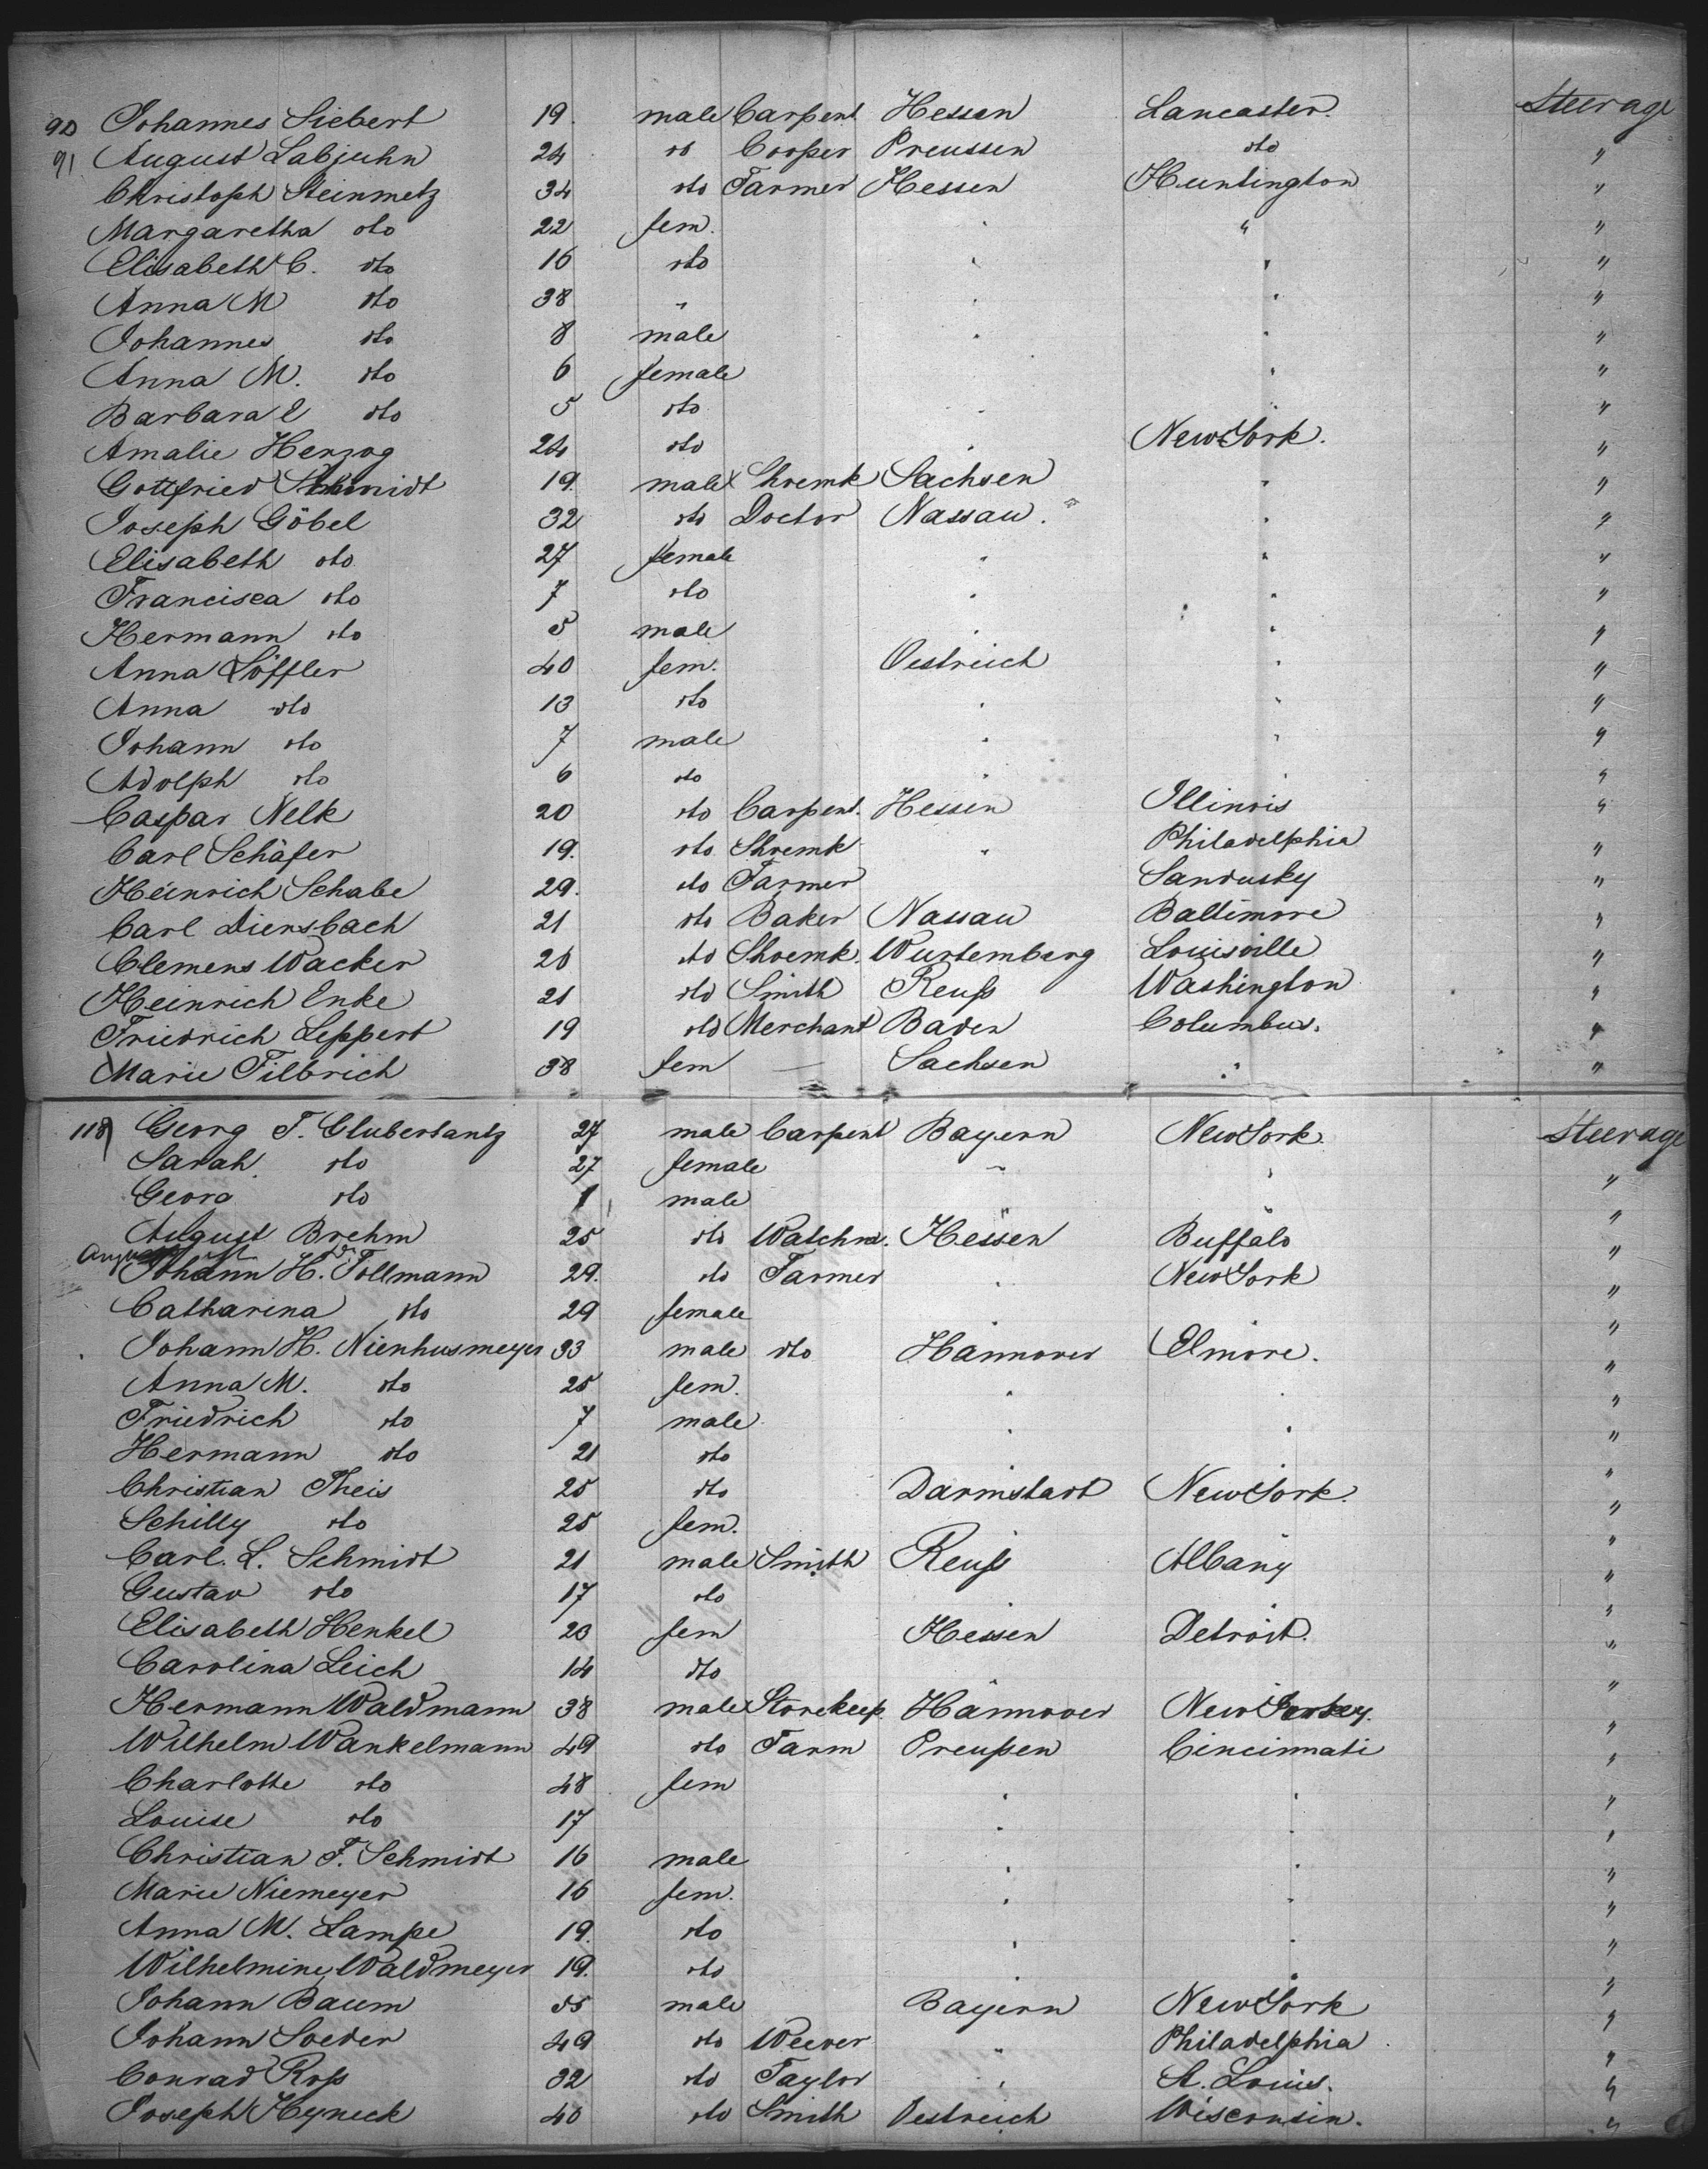 90 Johannes Siebert 19. male Carpent. Hessen Lancaster. Steerage
91 August Labjuhn 24 do Cooper Preussen dto "
Christoph Steinmetz 34 dto Farmer Hessen Huntington "
Margaretha dto 22 fem. " " "
Elisabeth C. dto 16 dto " " "
Anna M dto 38 " " " "
Johannes dto 8 male " " "
Anna M. dto 6 female " "
Barbara E dto 5 dto " "
Amalie Herzog 24 dto " New York. "
Gottfried Schmidt 19. male Shoemk Sachsen " "
Joseph Göbel 32 dto Doctor Nassau. " "
Elisabeth dto 27 female " " "
Francisca dto 7 dto " " "
Hermann dto 5 male " " "
Anna Löffler 40 fem. Oestreich " "
Anna dto 13 dto " " "
Johann dto 7 male " " "
Adolph dto 6 dto " " "
Caspar Nelk 20 dto Carpent. Hessen Illinois "
Carl Schäfer 19. dto Shoemk " Philadelphia "
Heinrich Schabe 29. dto Farmer Sandusky "
Carl Diersbach 21 dto Baker Nassau Baltimore "
Clemens Wacker 26 dto Shoemk. Wurtemberg Louisville "
Heinrich Enke 21 dto Smith Reuß Washington "
Friedrich Leppert 19 dto Merchant Baden Columbus. "
Marie Filbrich 38 fem — Sachsen " "
118 Georg F. Glubertantz 27 male Carpent Bayern New York. Steerage
Sarah dto 27 female " " "
Georg dto 1 male " " "
August Brehm 25 dto Watchm. Hessen Buffalo "
Johann H. Tollmann 29. dto Farmer " New York "
Catharina dto 29 female " " "
Johann H. Nienhusmeyer 33 male dto Hannover Elmore. "
Anna M. dto 25 fem. " " "
Friedrich dto 7 male " " "
Hermann dto 21 dto "
Christian Theis 25 dto Darmstadt New York. "
Schilly dto 25 fem. "
Carl. L. Schmidt 21 male Smith Reuß Albany "
Gustav dto 17 dto " " "
Elisabeth Henkel 23 fem Hessen Detroit. "
Carolina Leich 14 dto " " "
Hermann Waldmann 38 male Storekeep. Hannover New Jersey. "
Wilhelm Wankelmann 49 dto Farm Preußen Cincinnati "
Charlotte dto 48 fem " " "
Louise dto 17 " " "
Christian F. Schmidt 16 male " " "
Marie Niemeyer 16 fem. " " "
Anna M. Lampe 19. dto " " "
Wilhelmine Waldmeyer 19. dto " " "
Johann Baum 35 male Bayern New York "
Johann Soeder 49 dto Weever " Philadelphia "
Conrad Roß 32 dto Taylor " St. Louis. "
Joseph Hyneck 40 dto Smith Oestreich Wisconsin. "